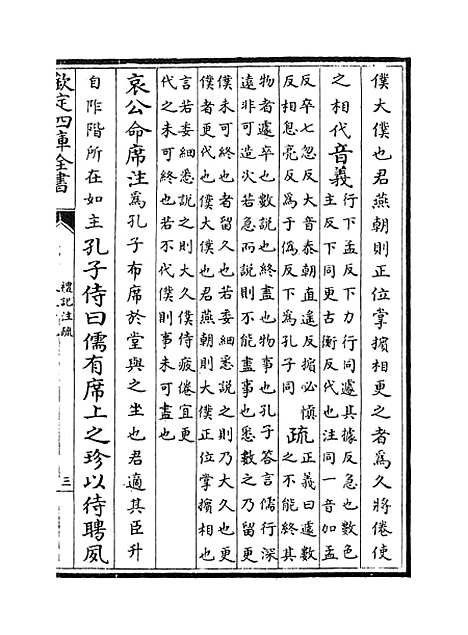 僕大僕也君燕朝則正位掌擯相更之者爲久將倦使
之相代音義行下孟反下力行同遽其據反急也數色
主反下同更古衡反代也注同一音加孟
反卒七忽反大音泰朝直遥反擯必慎
反相息亮反爲于僞反下爲孔子同
疏正義曰遽數
之不能終其
物者遽卒也數説也終盡也物事也孔子答言儒行深
遠非可造次若急而説則不能盡事也悉數之乃留更
僕未可終也者留久也若委細悉説之則乃大久也更
僕者更代也僕大僕也君燕朝則大僕正位掌擯相也
言若委細悉説之則大久僕侍疲倦宜更
代之未可終也若不代僕則事未可盡也
哀公命席注爲孔子布席於堂與之坐也君適其臣升
自阼階所在如主孔子侍曰儒有席上之珍以待聘夙
欽定四庫全書
禮記注疏
三